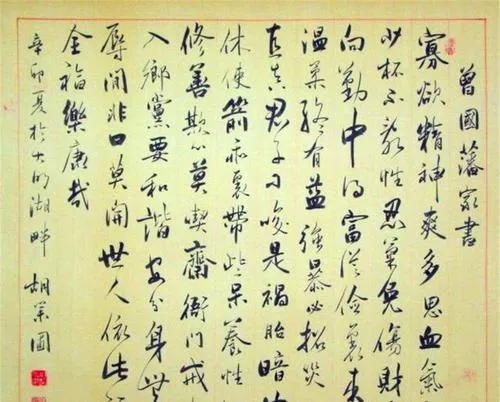 曾國藩家書
寡欲精神爽多思血氣
少杯不亂性忍氣免傷財
向勤中得富從儉裏來
溫柔終有益強暴必招災
直真君子刁唆是禍胎暗
休使箭乖裏帶些呆養性
修善欺心莫喫齋衙門戒
入鄉黨要和諧安分身無
辱閒非口莫開世人依此
全福樂康哉
辛卯夏於大明湖畔 胡國